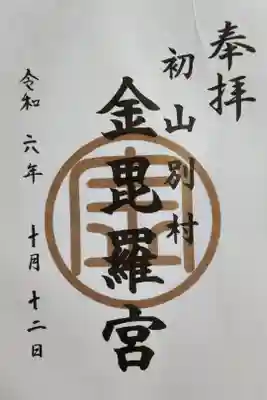 奉拝
初山別村
金毘羅宮
令和六年十月十二日